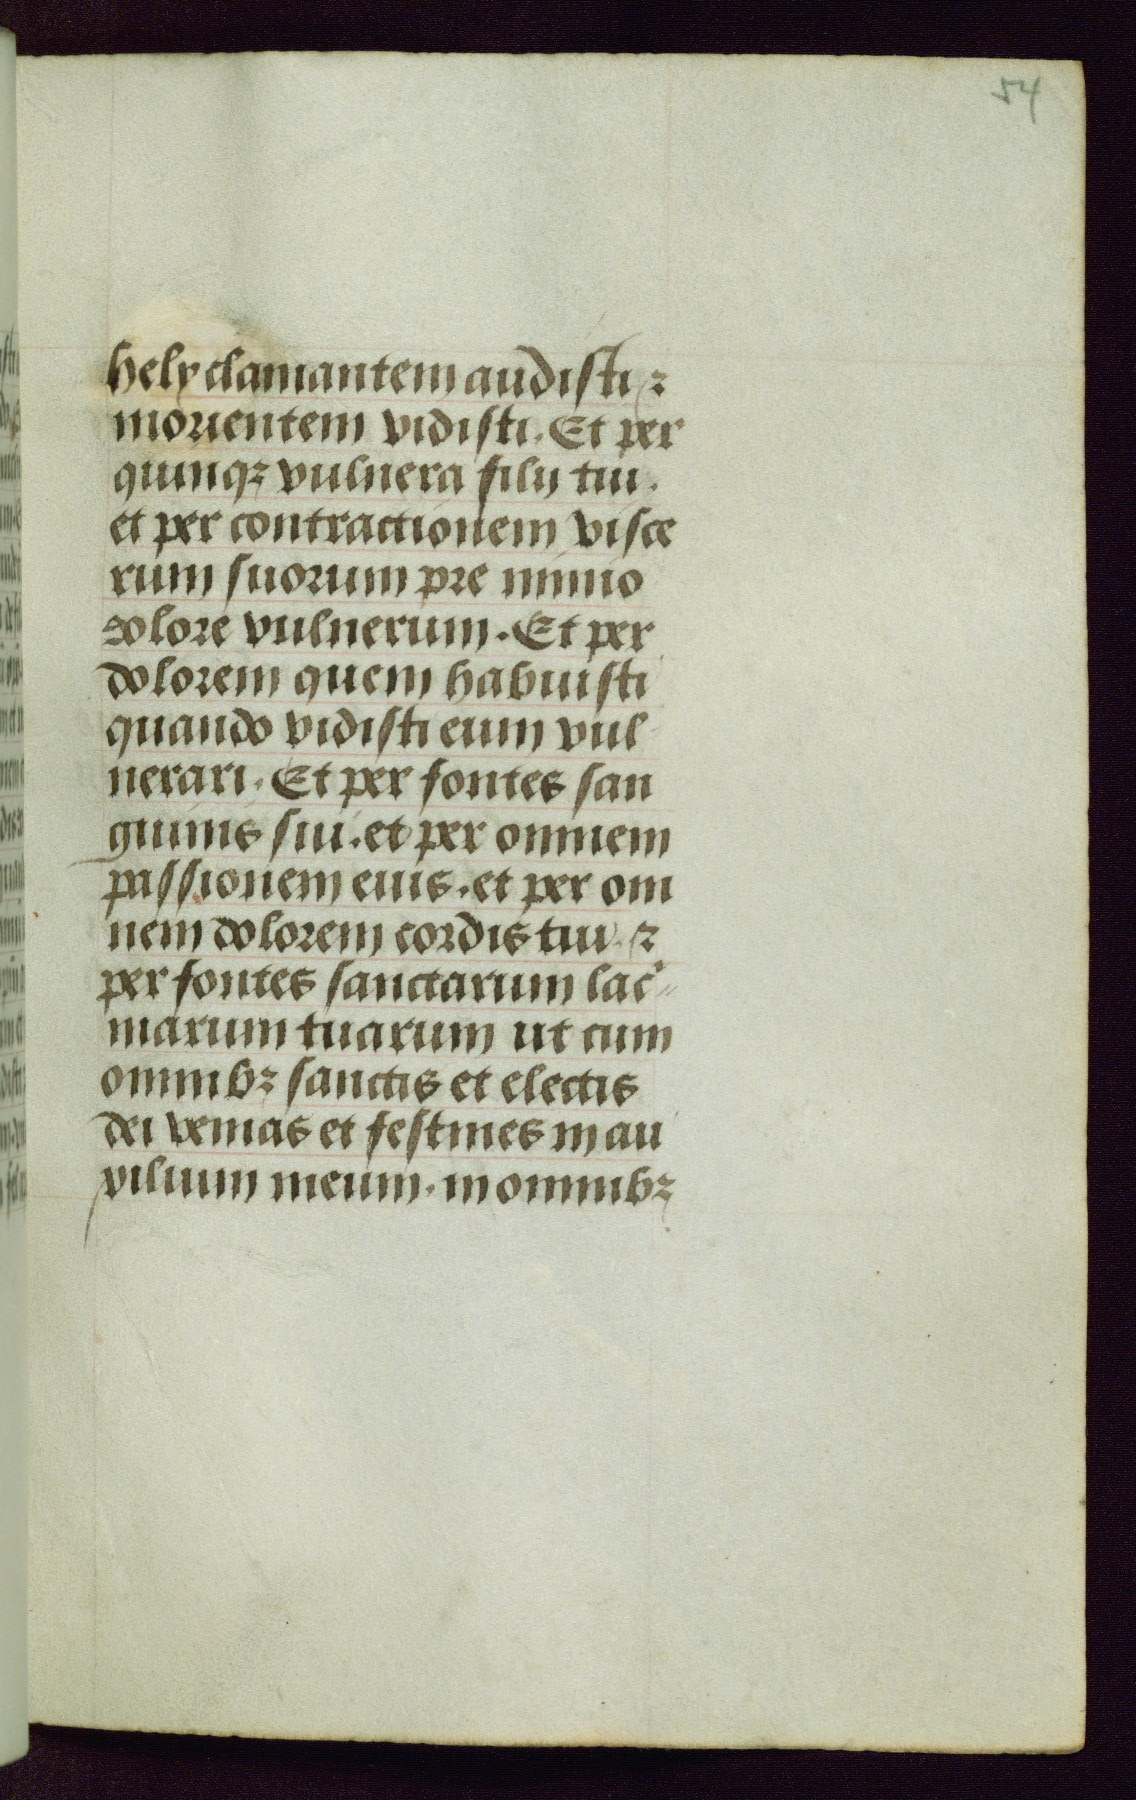 54
hely clamantem audisti ⁊
morientem vidisti. Et per
quinqꝫ vulnera filii tui.
et per contractionem visce
rum suorum pre nimio
dolore vulnerum. Et per
dolorem quem habuisti
quando vidisti eum vul
nerari. Et per fontes san
guinis sui. et per omnem
passionem eius. et per om
nem dolorem cordis tui. ⁊
per fontes sanctarum lac̾
marum tuarum ut cum
omnibꝫ sanctis et electis
dei venias et festines in au
xilium meum. in omnibꝫ